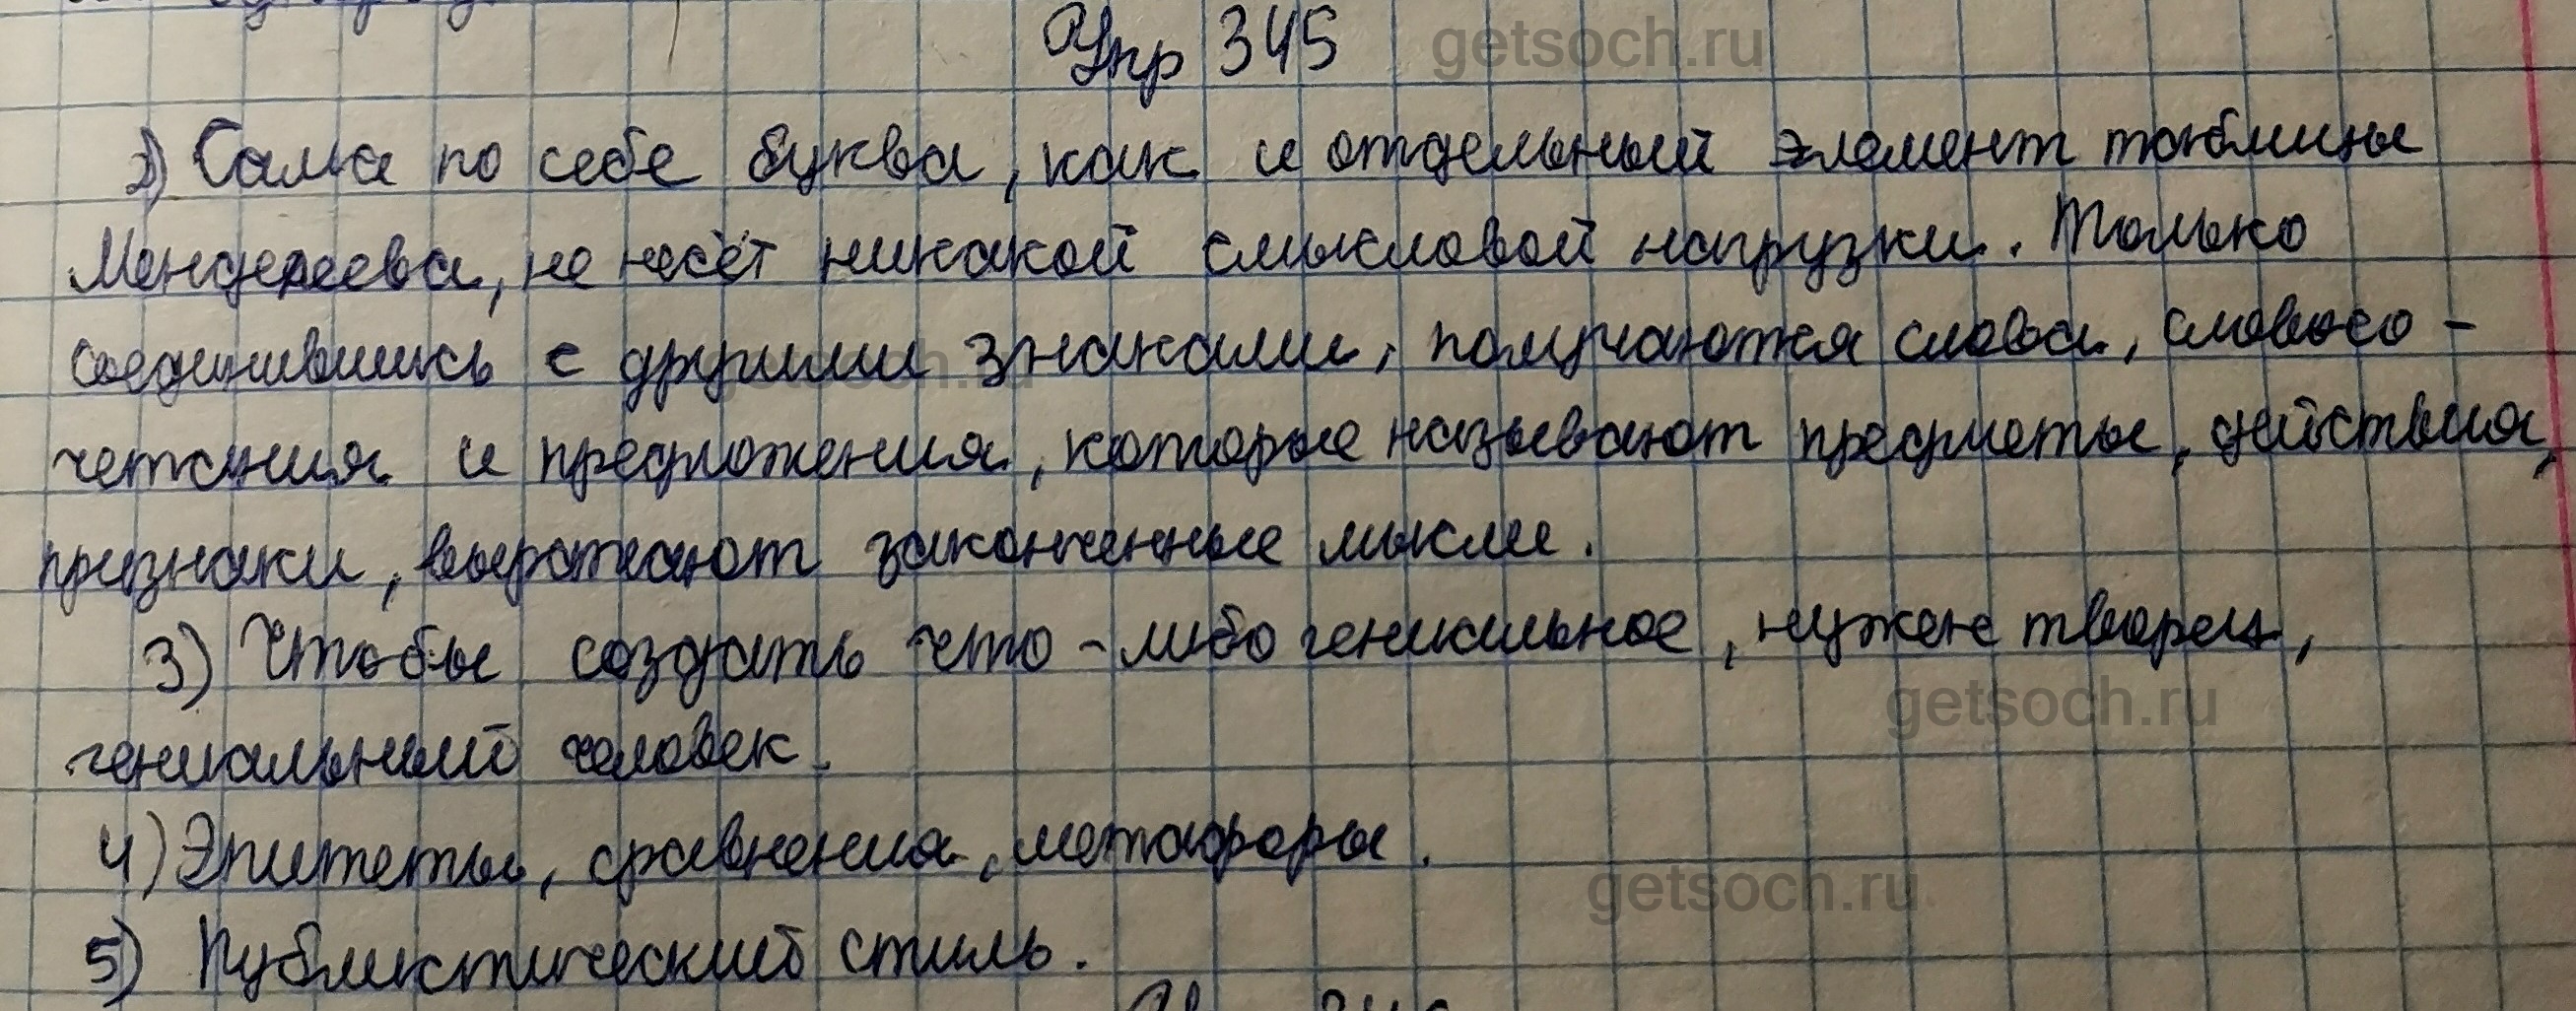 Упр 345
2) Сама по себе буква, как и отдельный элемент таблицы
Менделеева, не несёт никакой смысловой нагрузки. Только
соединившись с другими знаками, получаются слова, словосо-
четания и предложения, которые называют предметы, действия,
признаки, выражают законченные мысли.
3) Чтобы создать что-либо гениальное, нужен творец,
гениальный человек.
4) Эпитеты, сравнения, метафоры.
5) Публистический стиль.
getsoch.ru
getsoch.ru
getsoch.ru
getsoch.ru